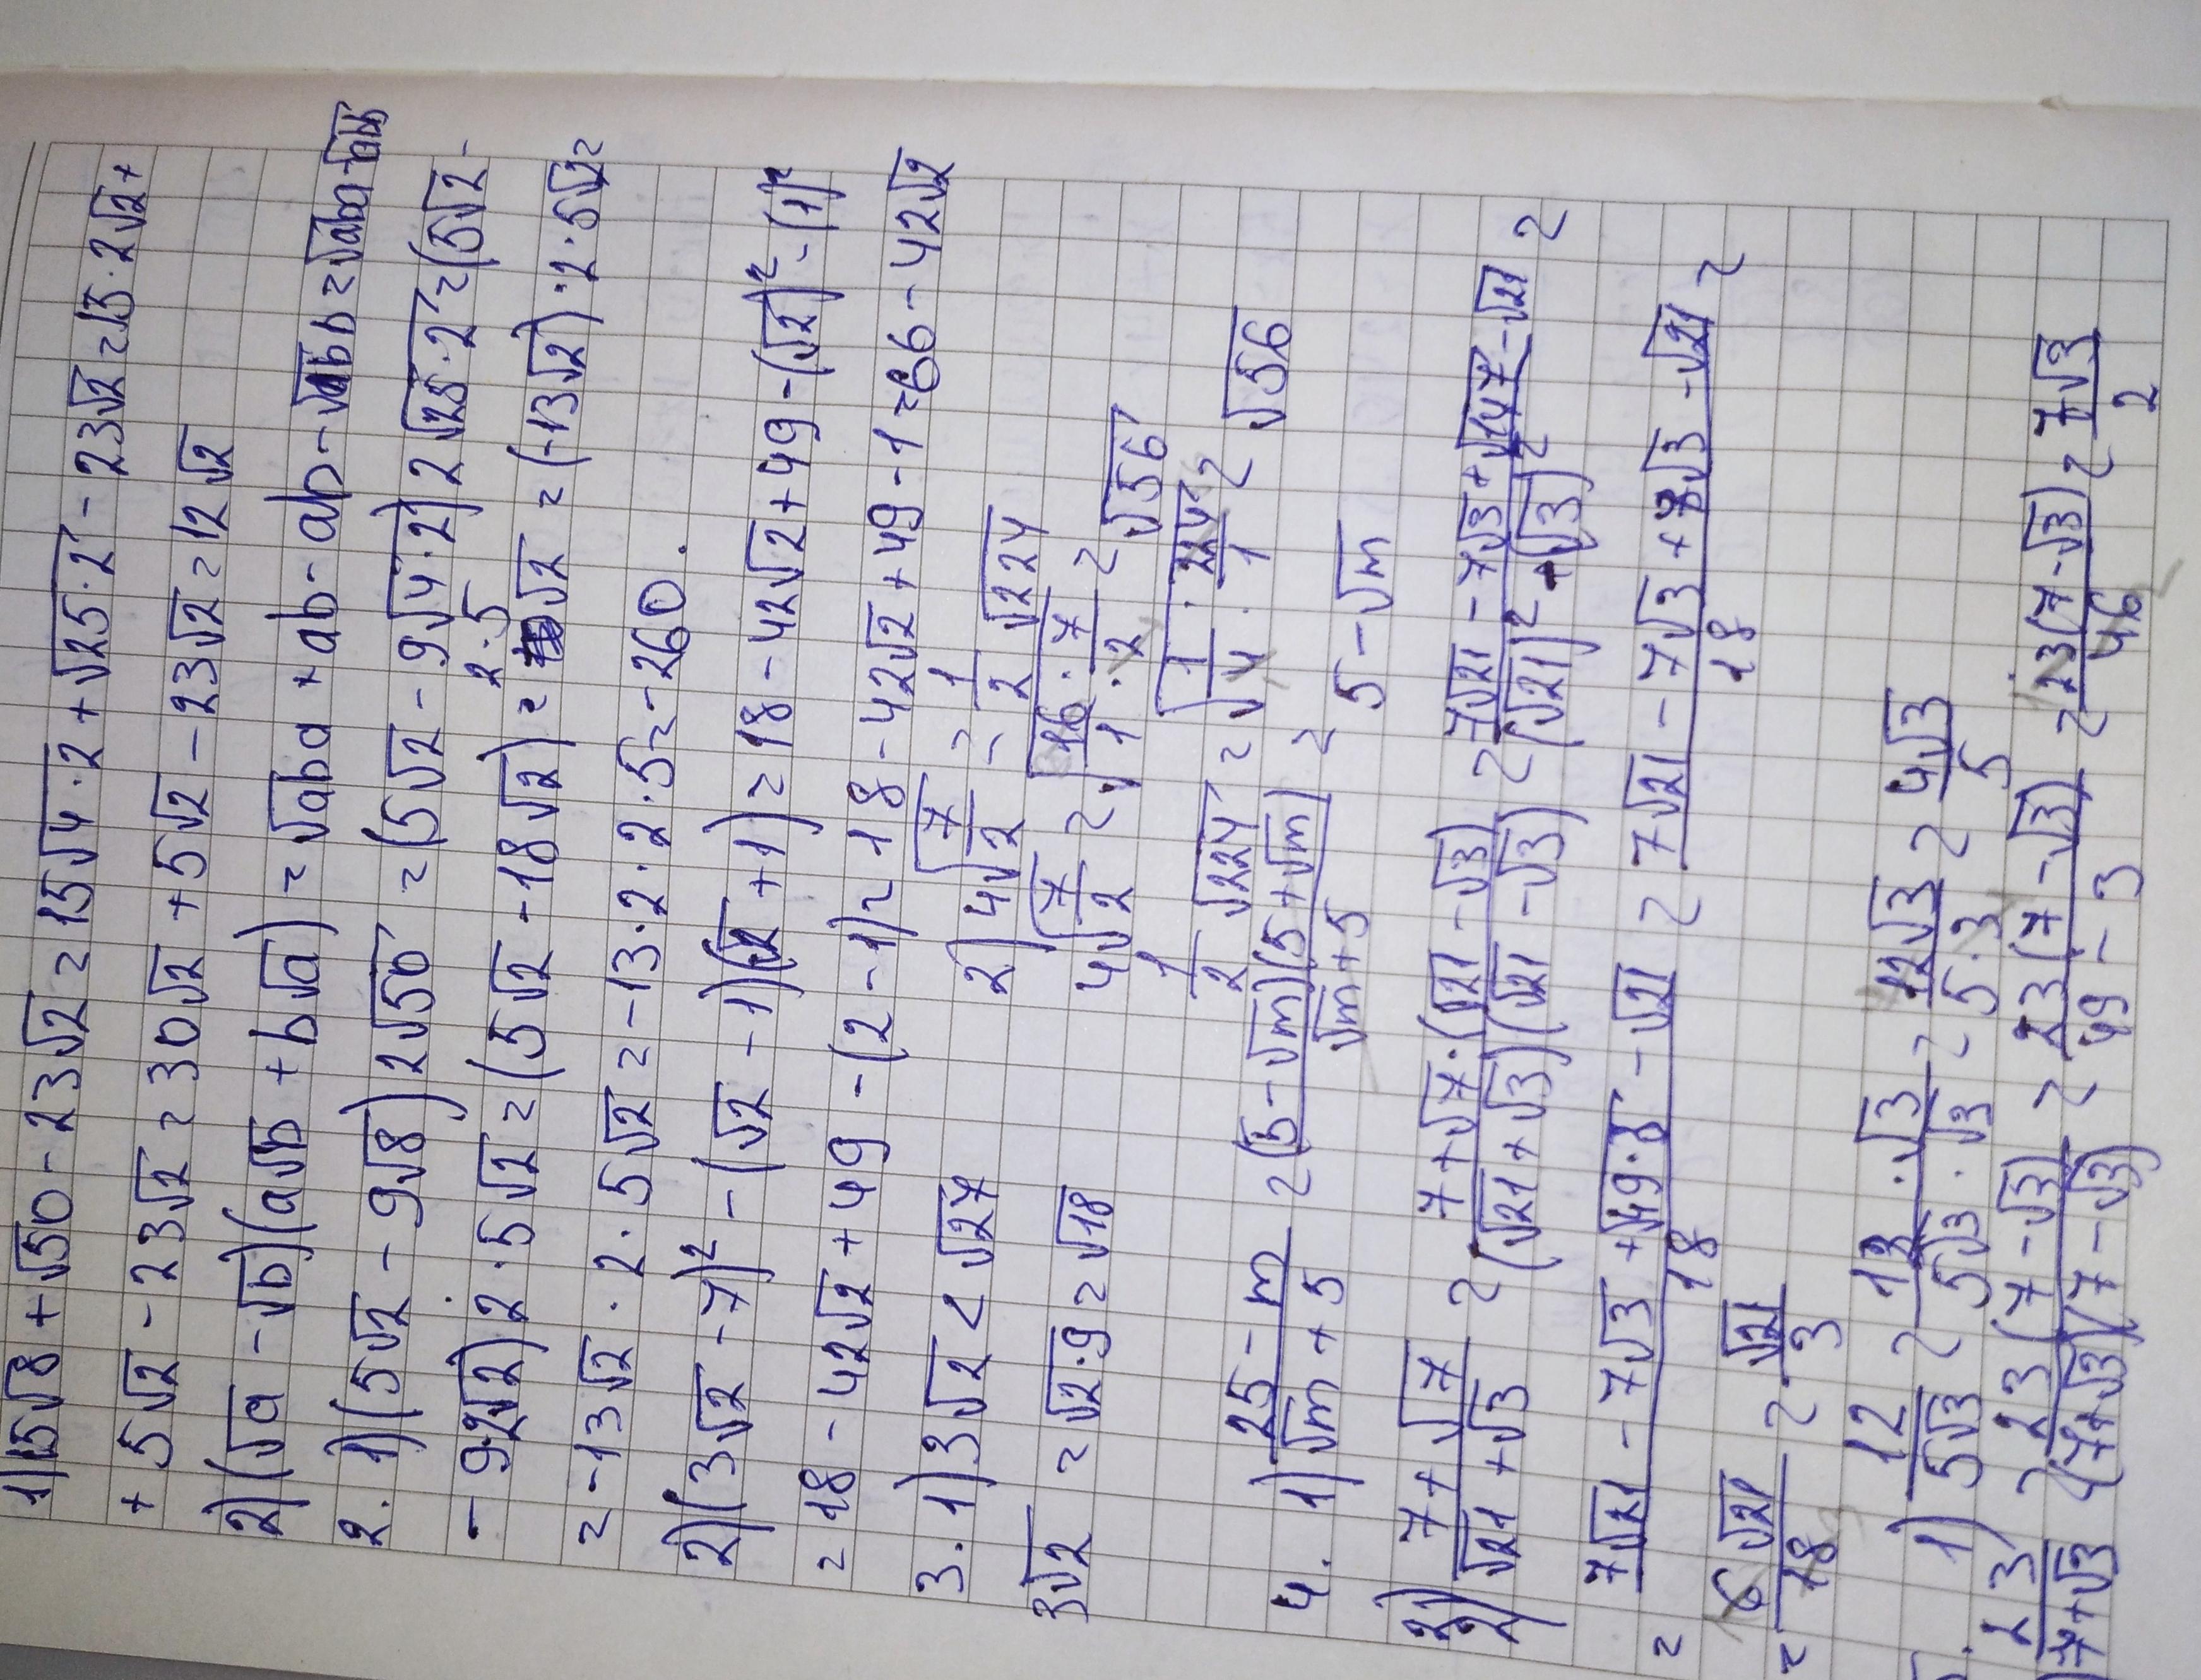 1) 15√8 + √50 - 23√2 = 15√4·2 + √25·2 - 23√2 = 15·2√2 +
+ 5√2 - 23√2 = 30√2 + 5√2 - 23√2 = 12√2
2) (√a - √b)(a√b + b√a) = √aba + ab - ab - √abb = √aba - √abb
2. 1) (5√2 - 9√8) 2√50 = (5√2 - 9√4·2) 2√25·2 = (5√2 -
- 9·2√2) 2·5√2 = (5√2 - 18√2) = 2·5√2 = (-13√2)·2·5√2 =
= -13√2 · 2·5√2 = -13·2·2·5 = -260.
2) (3√2 - 7)² - (√2 - 1)(√2 + 1) = 18 - 42√2 + 49 - (√2)² - (1)²
= 18 - 42√2 + 49 - (2 - 1) = 18 - 42√2 + 49 - 1 = 66 - 42√2
3. 1) 3√2 < √27
2) 4√7/2 = 1/2 √224
3√2 = √2·9 = √18
4√7/2 = √16·7/1·2 = √56
1/2 √224 = √1/4 · 224/1 = √56
4. 1) 25 - m/√m + 5 = (5 - √m)(5 + √m)/√m + 5 = 5 - √m
2) 7 + √7/√21 + √3 = 7 + √7·(√21 - √3)/(√21 + √3)(√21 - √3) = 7√21 - 7√3 + √147 - √21/(√21)² - (√3)² =
= 7√21 - 7√3 + √49·3 - √21/18 = 7√21 - 7√3 + 7√3 - √21/18 =
= 6√21/18 = √21/3
1) 12/5√3 = 12·√3/5√3·√3 = 12√3/5·3 = 4√3/5
) 23/7+√3 = 23(7-√3)/(7+√3)(7-√3) = 23(7-√3)/49-3 = 23(7-√3)/46 = 7√3/2